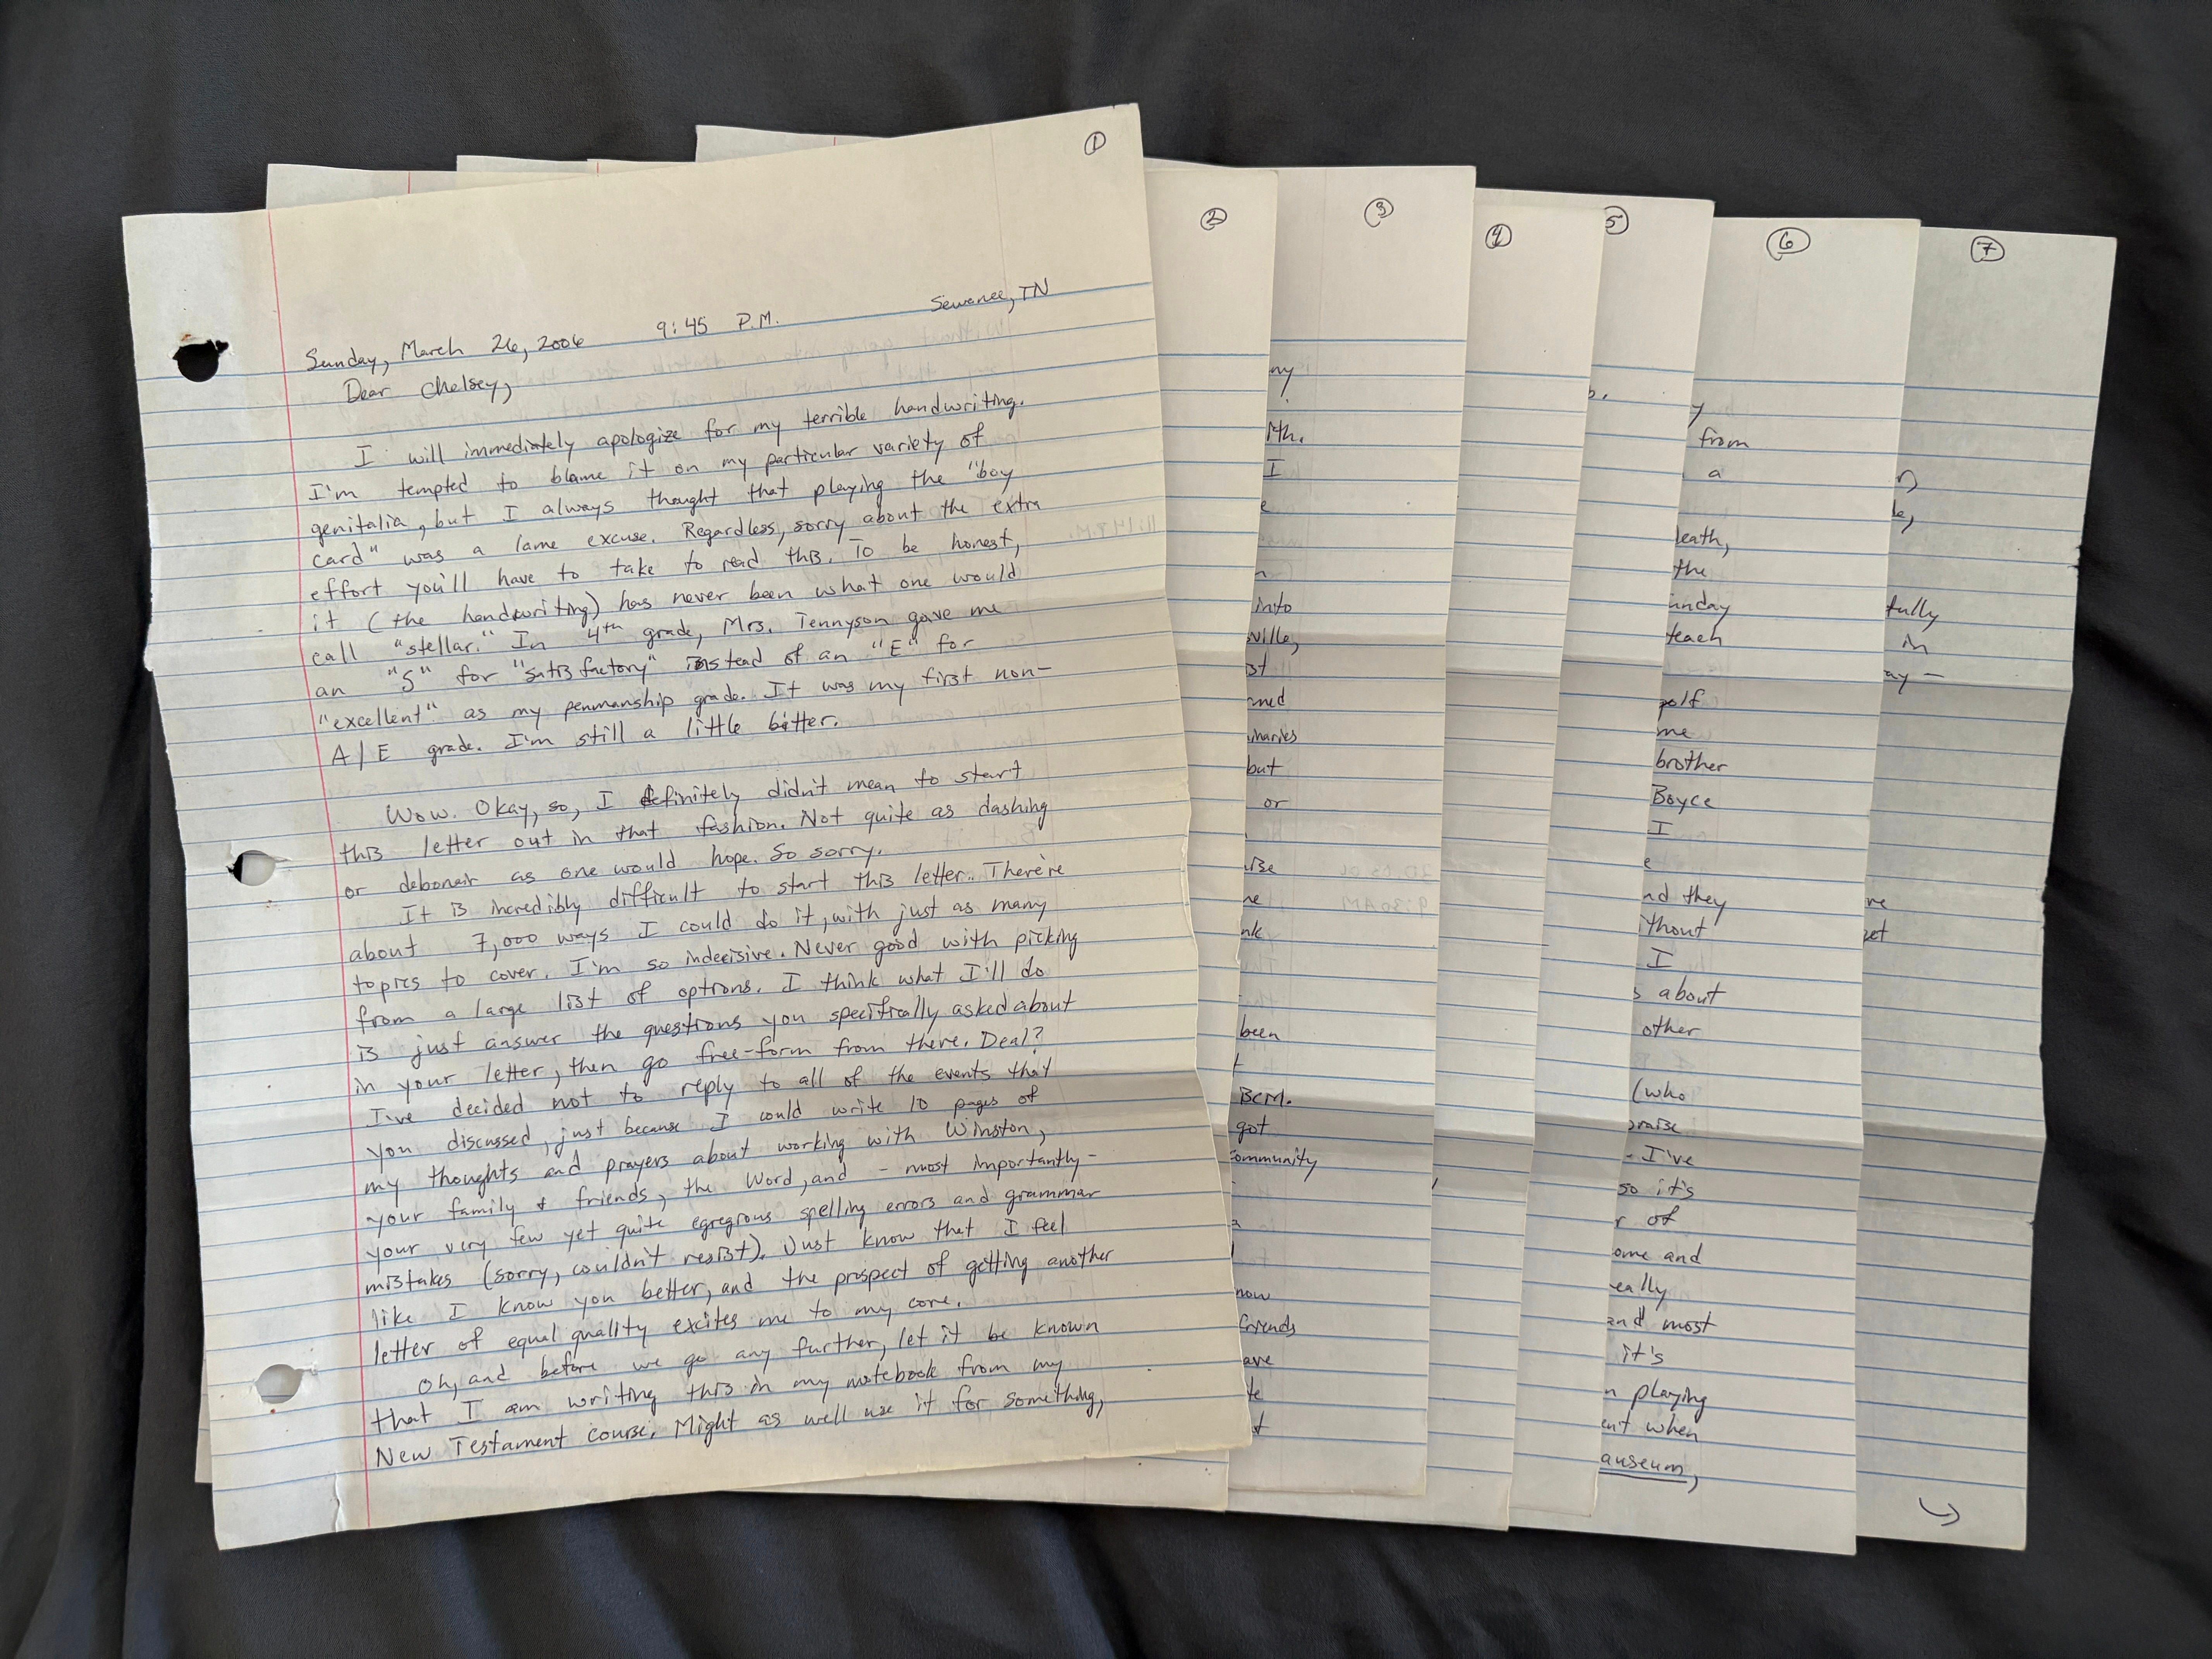 ①
Sunday, March 26, 2006 9:45 P.M. Sewanee, TN
Dear Chelsey,
I will immediately apologize for my terrible handwriting.
I'm tempted to blame it on my particular variety of
genitalia, but I always thought that playing the "boy
card" was a lame excuse. Regardless, sorry about the extra
effort you'll have to take to read this. To be honest,
it (the handwriting) has never been what one would
call "stellar." In 4th grade, Mrs. Tennyson gave me
an "S" for "satisfactory" instead of an "E" for
"excellent" as my penmanship grade. It was my first non-
A/E grade. I'm still a little bitter.
Wow. Okay, so, I definitely didn't mean to start
this letter out in that fashion. Not quite as dashing
or debonair as one would hope. So sorry.
It is incredibly difficult to start this letter. There're
about 7,000 ways I could do it, with just as many
topics to cover. I'm so indecisive. Never good with picking
from a large list of options. I think what I'll do
is just answer the questions you specifically asked about
in your letter, then go free-form from there. Deal?
I've decided not to reply to all of the events that
you discussed, just because I could write 10 pages of
my thoughts and prayers about working with Winston,
your family & friends, the Word, and - most importantly -
your very few yet quite egregious spelling errors and grammar
mistakes (sorry, couldn't resist). Just know that I feel
like I know you better, and the prospect of getting another
letter of equal quality excites me to my core.
Oh, and before we go any further, let it be known
that I am writing this in my notebook from my
New Testament course. Might as well use it for something,
②
③
ny
ith.
I
e
n
into
ville,
st
rned
inaries
but
or
ise
he
nk
been
t
BCM.
got
community
a
now
friends
ave
te
t
④
⑤
⑥
y
from
a
leath,
the
unday
teach
golf
me
brother
Boyce
I
e
nd they
ithout
I
s about
other
(who
praise
- I've
so it's
r of
ome and
really
and most
it's
n playing
ent when
auseum,
⑦
n
le,
tfully
in
ay -
re
get